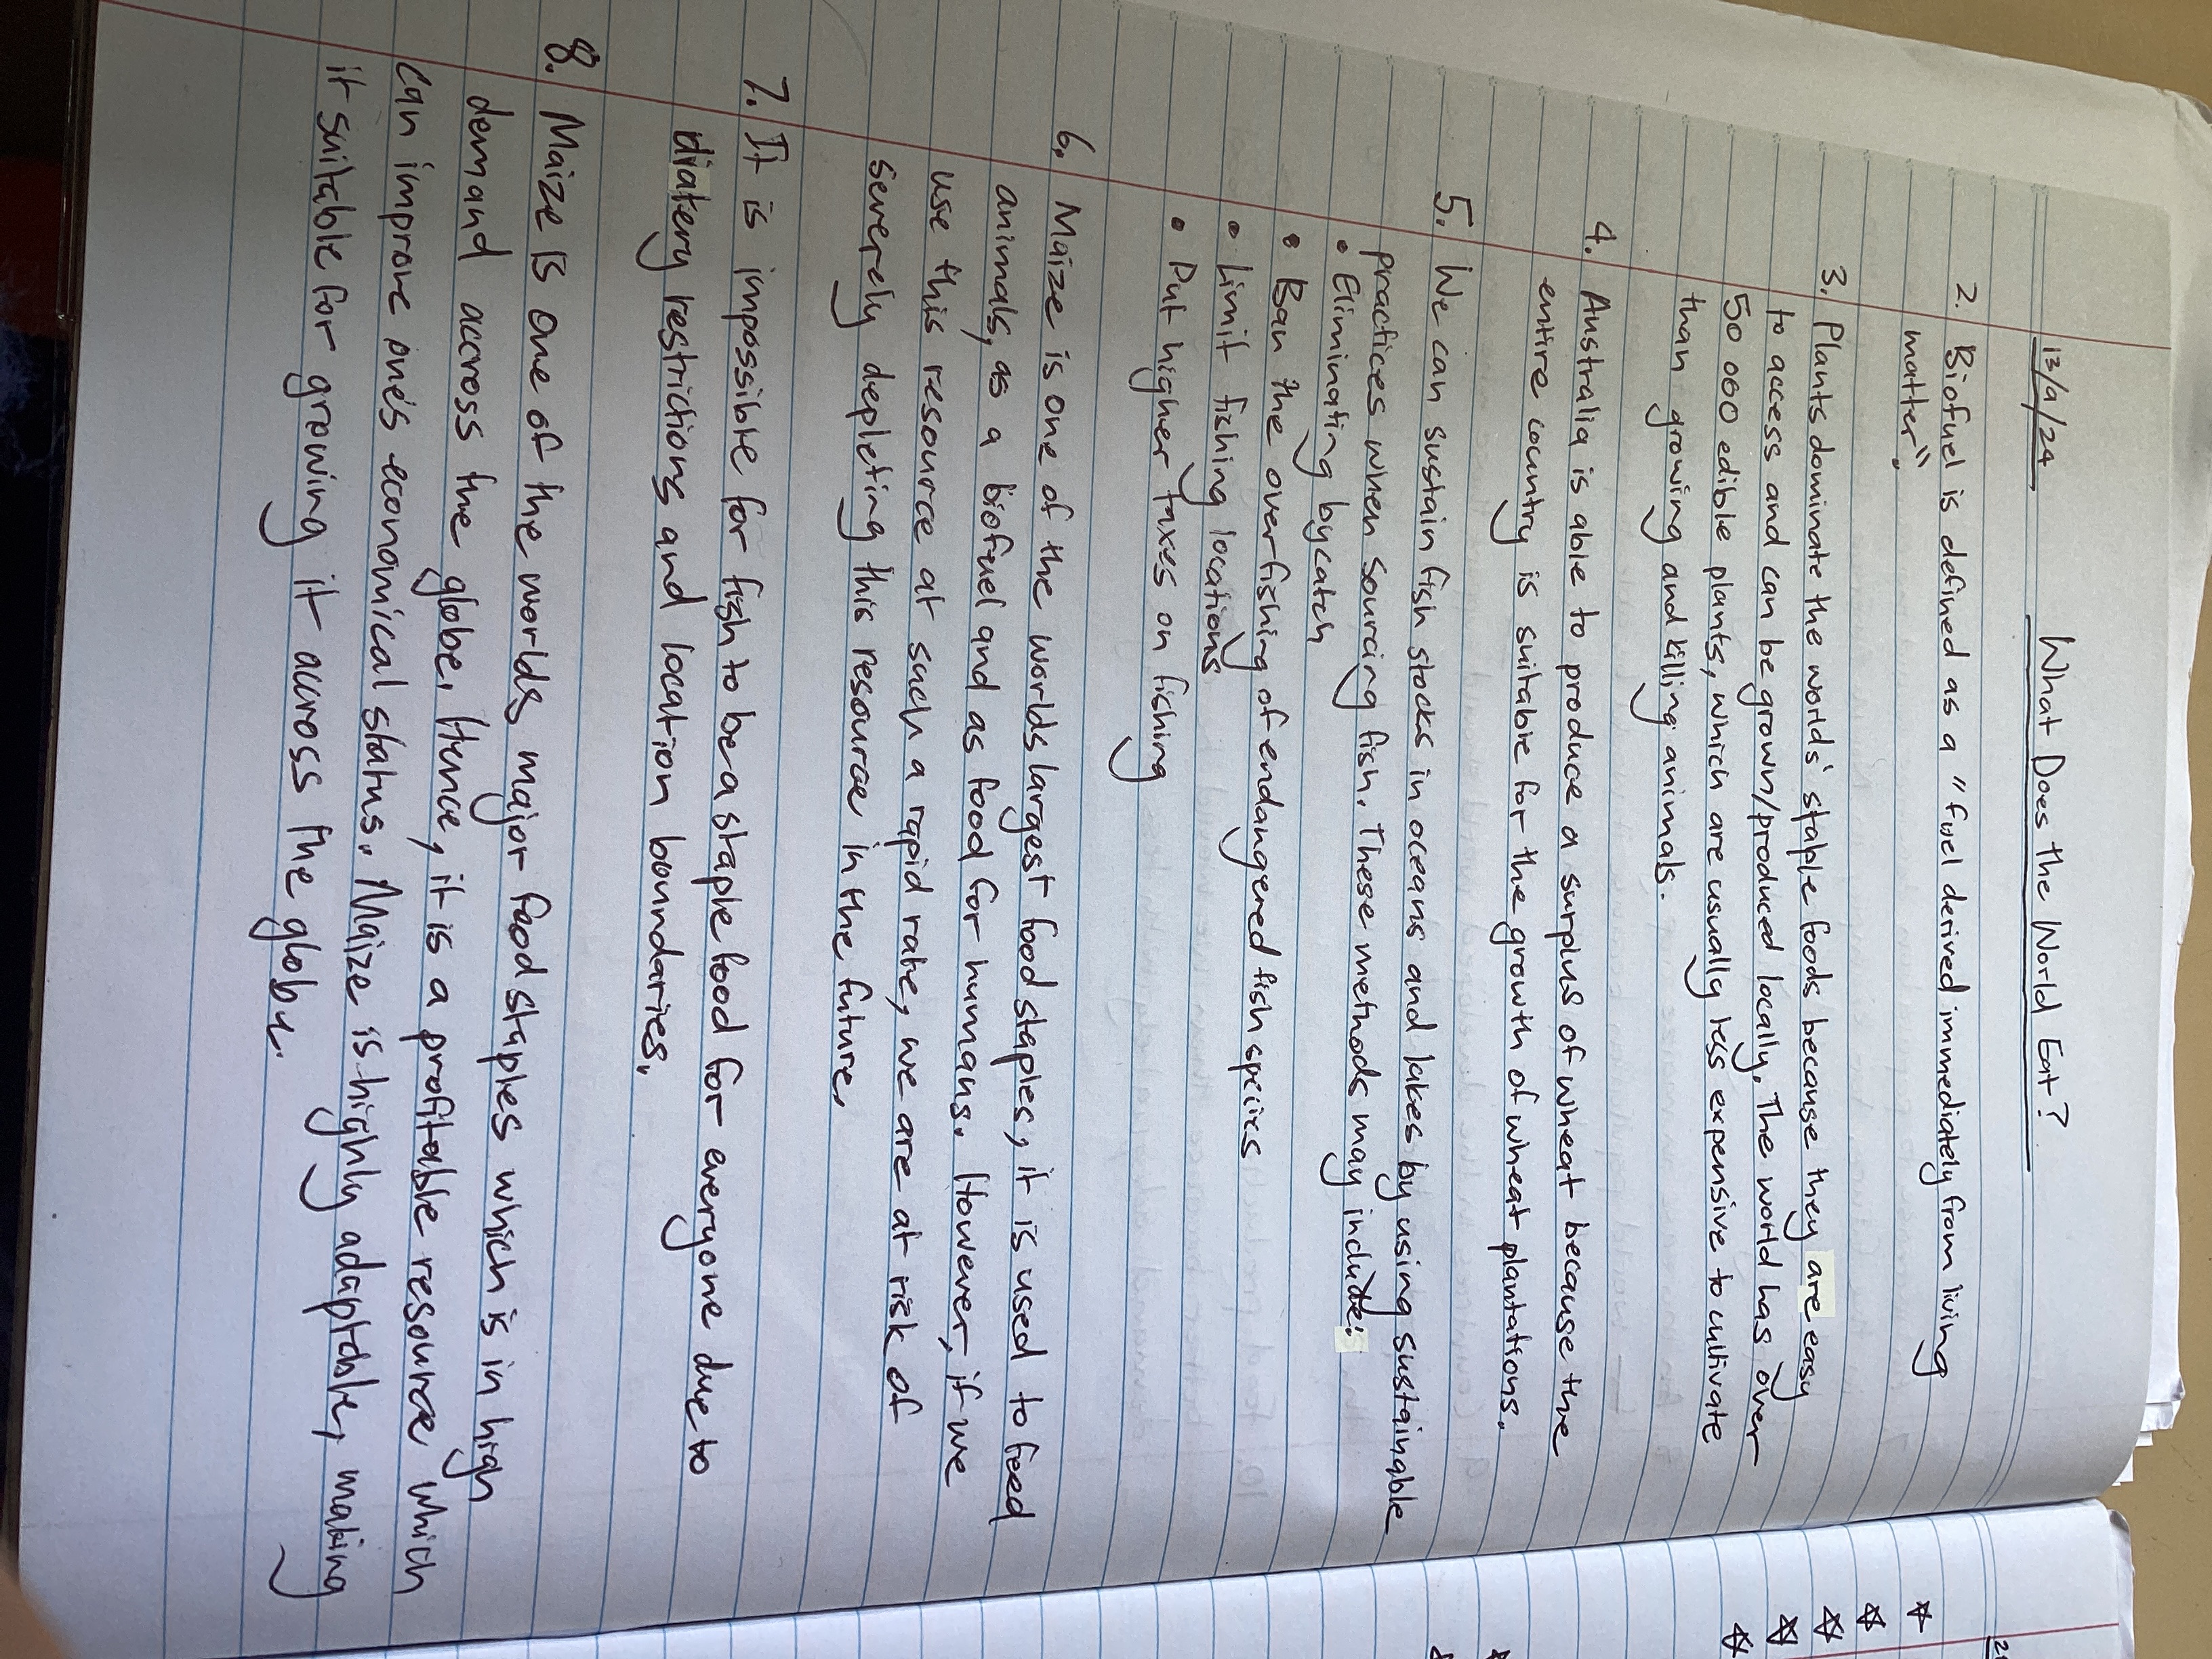 13/9/24
What Does the World Eat?
2. Biofuel is defined as a "fuel derived immediately from living
matter".
3. Plants dominate the worlds' staple foods because they are easy
to access and can be grown/produced locally. The world has over
50 000 edible plants, which are usually less expensive to cultivate
than growing and killing animals.
4. Australia is able to produce a surplus of wheat because the
entire country is suitable for the growth of wheat plantations.
5. We can sustain fish stocks in oceans and lakes by using sustainable
practices when sourcing fish. These methods may include:
• Eliminating bycatch
• Ban the overfishing of endangered fish species
• Limit fishing locations
• Put higher taxes on fishing
6. Maize is one of the worlds largest food staples, it is used to feed
animals, as a biofuel and as food for humans. However, if we
use this resource at such a rapid rate, we are at risk of
severely depleting this resource in the future.
7. It is impossible for fish to be a staple food for everyone due to
diatery restrictions and location boundaries.
8. Maize is one of the worlds major food staples which is in high
demand accross the globe. Hence, it is a profitable resource which
can improve one's economical status. Maize is highly adaptable, making
it suitable for growing it accross the globe.